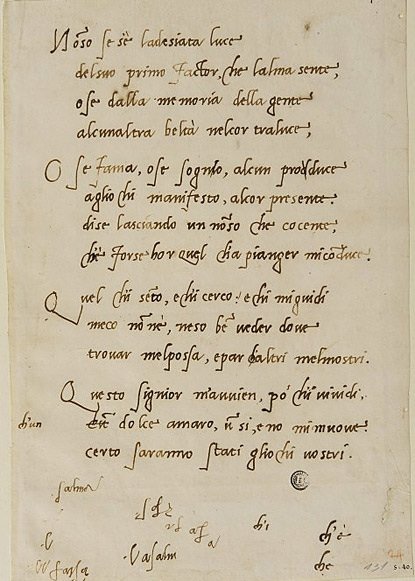 No so se s'è la desiata luce
del suo primo factor, che l'alma sente,
o se dalla memoria della gente
alcun altra beltà nel cor traluce;
O se fama, o se sognio, alcun prodduce
agli ochi manifesto, al cor presente
di sé lasciando un no so che cocente,
ch'è forse hor quel ch'a pianger mi conduce.
Quel ch'i sento, e ch'i cerco: e chi mi guidi
meco no n'è, né so bē veder dove
trovar mel possa, e par ch'altri mel mostri.
Questo, signior, m'avvien, po' ch'i vi vidi,
ch'un
dolce amaro, ū sì, e no mi muove:
certo saranno stati gli ochi vostri.
salmo
ch'i
ch'è
che